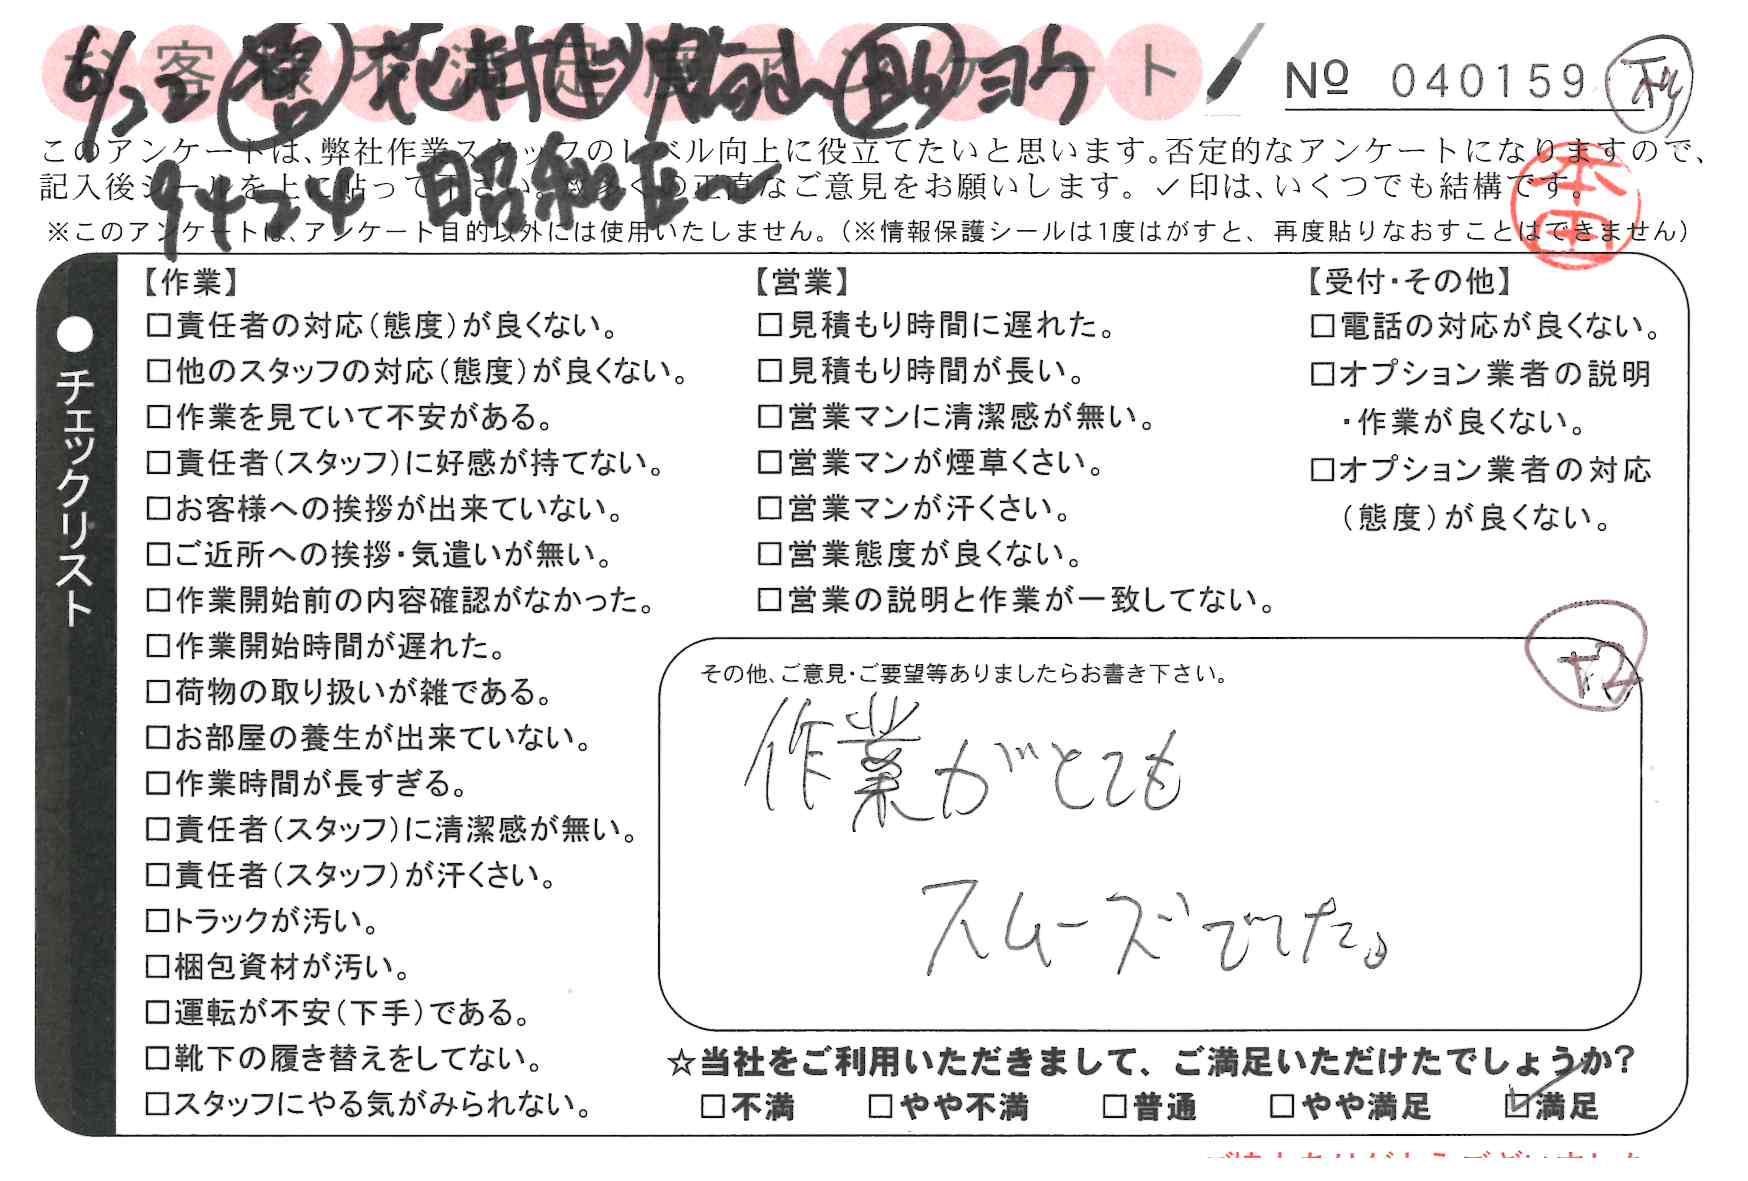 お客様不満足度アンケート
№ 040159
6/22
このアンケートは、弊社作業スタッフのレベル向上に役立てたいと思います。否定的なアンケートになりますので、
記入後シールを上に貼って下さい。数多くの正直なご意見をお願いします。✓印は、いくつでも結構です。
9424 昭和
※このアンケートは、アンケート目的以外には使用いたしません。(※情報保護シールは1度はがすと、再度貼りなおすことはできません)
●チェックリスト
【作業】
□責任者の対応(態度)が良くない。
□他のスタッフの対応(態度)が良くない。
□作業を見ていて不安がある。
□責任者(スタッフ)に好感が持てない。
□お客様への挨拶が出来ていない。
□ご近所への挨拶・気遣いが無い。
□作業開始前の内容確認がなかった。
□作業開始時間が遅れた。
□荷物の取り扱いが雑である。
□お部屋の養生が出来ていない。
□作業時間が長すぎる。
□責任者(スタッフ)に清潔感が無い。
□責任者(スタッフ)が汗くさい。
□トラックが汚い。
□梱包資材が汚い。
□運転が不安(下手)である。
□靴下の履き替えをしてない。
□スタッフにやる気がみられない。
【営業】
□見積もり時間に遅れた。
□見積もり時間が長い。
□営業マンに清潔感が無い。
□営業マンが煙草くさい。
□営業マンが汗くさい。
□営業態度が良くない。
□営業の説明と作業が一致してない。
【受付・その他】
□電話の対応が良くない。
□オプション業者の説明
・作業が良くない。
□オプション業者の対応
(態度)が良くない。
その他、ご意見・ご要望等ありましたらお書き下さい。
作業がとても
スムーズでした。
☆当社をご利用いただきまして、ご満足いただけたでしょうか?
□不満 □やや不満 □普通 □やや満足 ☑満足